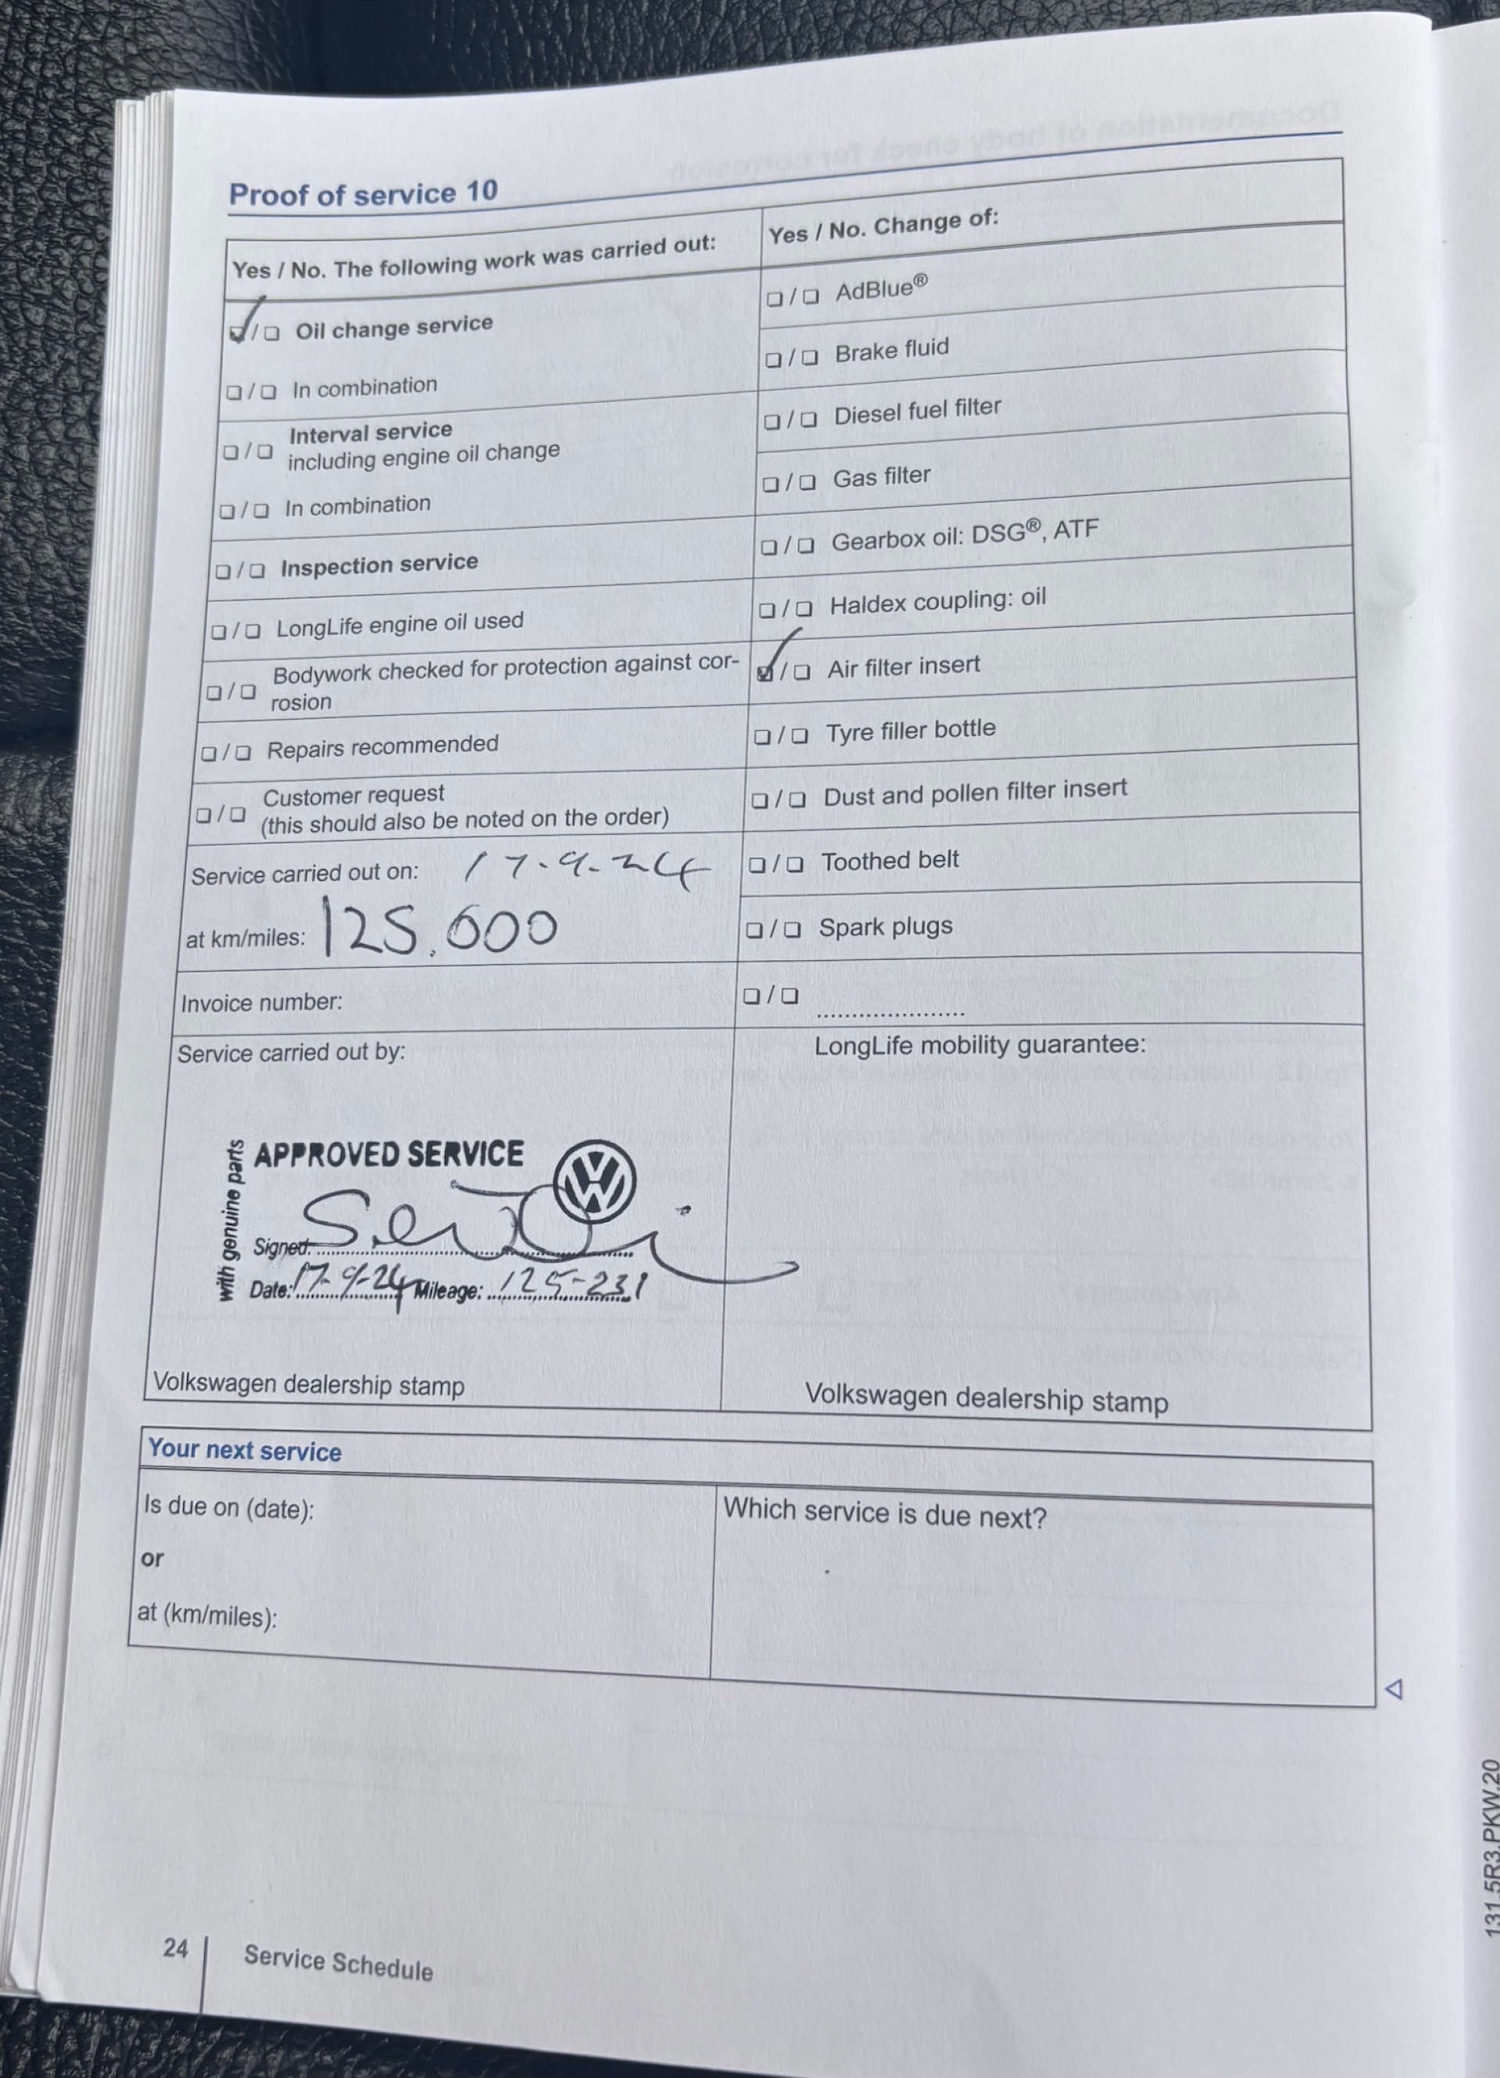 Proof of service 10
Yes / No. The following work was carried out:
☑/❏ Oil change service
❏/❏ In combination
❏/❏ Interval service
including engine oil change
❏/❏ In combination
❏/❏ Inspection service
❏/❏ LongLife engine oil used
❏/❏ Bodywork checked for protection against cor-
rosion
❏/❏ Repairs recommended
❏/❏ Customer request
(this should also be noted on the order)
Service carried out on: 17-9-24
at km/miles: 125.600
Invoice number:
Service carried out by:
with genuine parts
APPROVED SERVICE
Signed:
Date: 17-9-24 Mileage: 125-231
Volkswagen dealership stamp
Yes / No. Change of:
❏/❏ AdBlue®
❏/❏ Brake fluid
❏/❏ Diesel fuel filter
❏/❏ Gas filter
❏/❏ Gearbox oil: DSG®, ATF
❏/❏ Haldex coupling: oil
☑/❏ Air filter insert
❏/❏ Tyre filler bottle
❏/❏ Dust and pollen filter insert
❏/❏ Toothed belt
❏/❏ Spark plugs
❏/❏ .....................
LongLife mobility guarantee:
Volkswagen dealership stamp
Your next service
Is due on (date):
or
at (km/miles):
Which service is due next?
24 Service Schedule
131.5R3.PKW.20